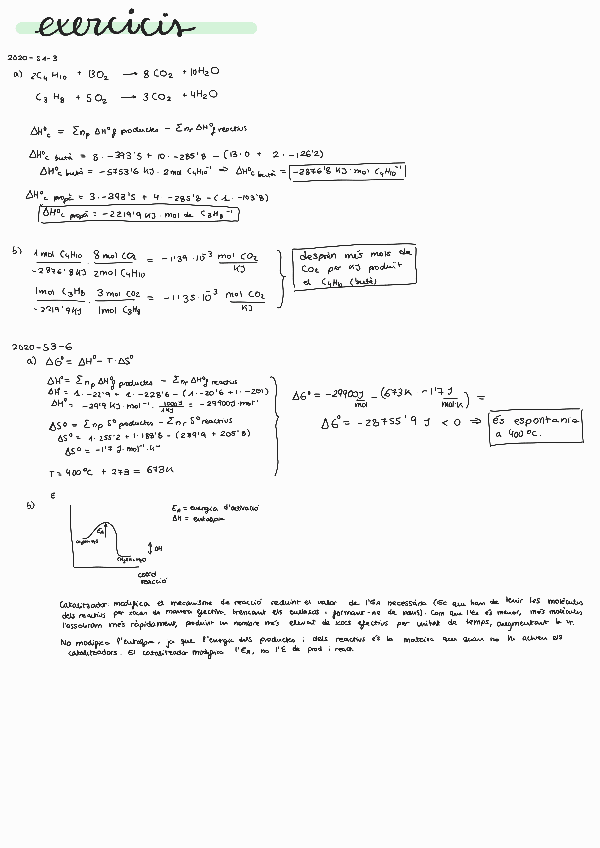 exercicis
2020-S4-3
a) 2C4H10 + 13O2 → 8CO2 + 10H2O
C3H8 + 5O2 → 3CO2 + 4H2O
ΔH°c = Σnp ΔH°f productes - Σnr ΔH°f reactius
ΔH°c butà = 8·-393'5 + 10·-285'8 - (13·0 + 2·-126'2)
ΔH°c butà = -5753'6 KJ·2mol C4H10⁻¹ ⇒ ΔH°c butà = -2876'8 KJ·mol C4H10⁻¹
ΔH°c propà = 3·-393'5 + 4·-285'8 - (1·-103'8)
ΔH°c propà = -2219'9 KJ·mol de C3H8⁻¹
b) 1mol C4H10 / -2876'8KJ · 8mol CO2 / 2mol C4H10 = -1'39·10⁻³ mol CO2 / KJ
1mol C3H8 / -2219'9KJ · 3mol CO2 / 1mol C3H8 = -1'35·10⁻³ mol CO2 / KJ
desprèn més mols de
CO2 per KJ produït
el C4H10 (butà)
2020-S3-6
a) ΔG° = ΔH° - T·ΔS°
ΔH° = Σnp ΔH°f productes - Σnr ΔH°f reactius
ΔS° = Σnp S° productes - Σnr S° reactius
ΔS° = -1'7 J·mol⁻¹·K⁻¹
T = 400°C + 273 = 673K
ΔG° = -29900J/mol - (673K · -1'7 J/mol·K) =
ΔG° = -28755'9 J < 0 ⇒ és espontània
a 400°C.
b) E
EA = energia d'activació
ΔH = entalpia
EA
ΔH
coord
reacció
Catalitzador: modifica el mecanisme de reacció reduint el valor de l'EA necessària (Ec que han de tenir les molècules
dels reactius per xocar de manera efectiva, trencant els enllaços i formant-ne de nous). Com que l'EA és menor, més molècules
l'assoliran més ràpidament, produint un nombre més elevat de xocs efectius per unitat de temps, augmentant la v.
No modifica l'entalpia, ja que l'energia dels productes i dels reactius és la mateixa que quan no hi actuen els
catalitzadors. El catalitzador modifica l'EA, no l'E de prod i react.